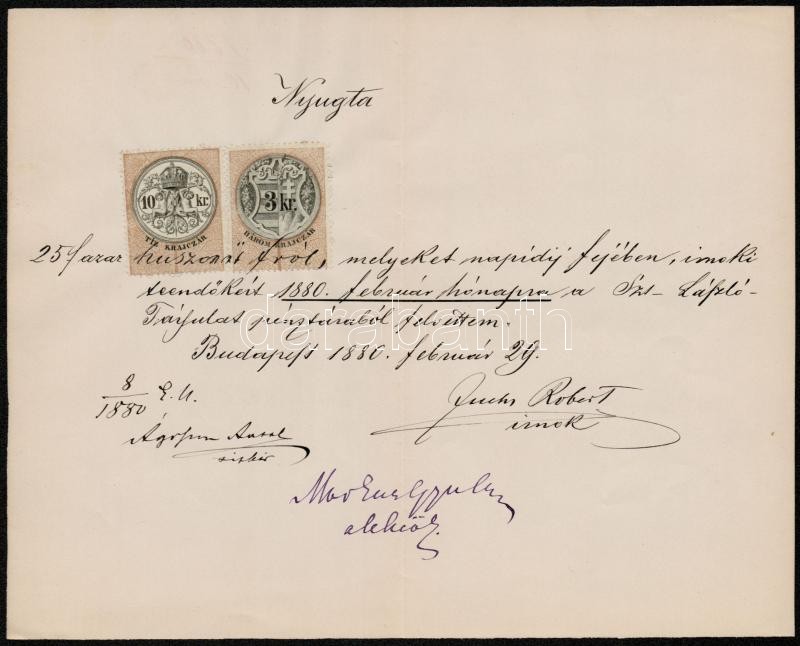 Nyugta
10 kr.
TIZ KRAJCZÁR
3 kr.
HÁROM KRAJCZÁR
25 f azaz huszonöt frról, melyeket napidíj fejében, irnoki
teendőkért 1880. február hónapra a Szt- László-
Társulat pénztárából felvettem.
Budapest 1880. február 29.
8/1880 E. U.
Fuchs Robert
irnok
Ágoston Antal
titkár
Markus Gyula
alelnök
darabanth